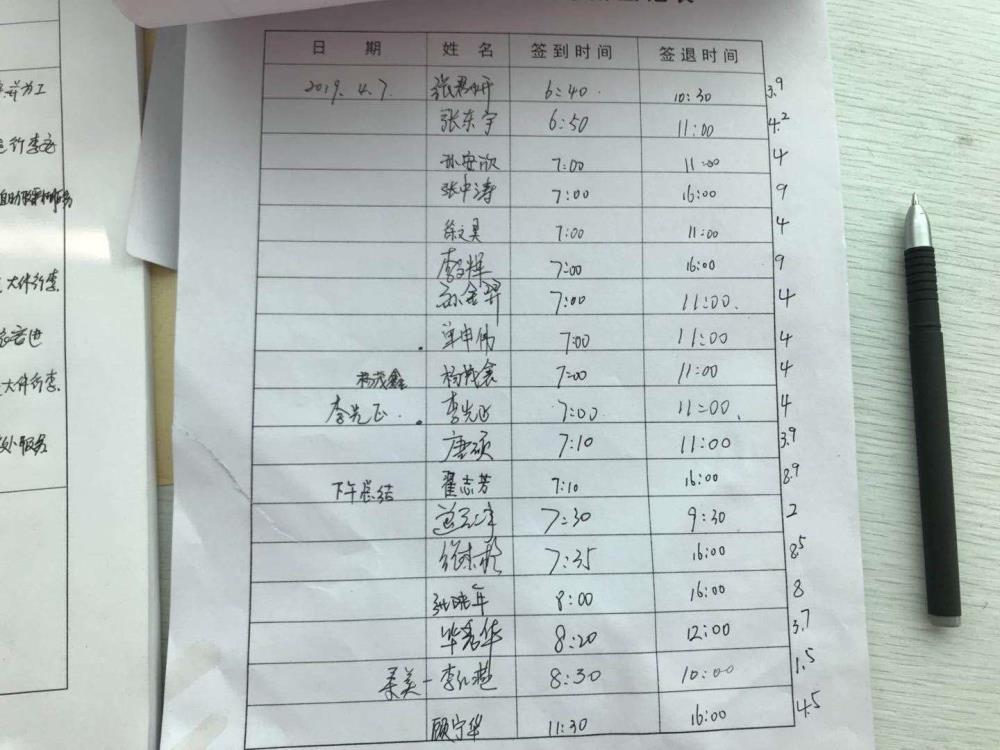 日 期 姓 名 签到时间 签退时间
2019. 4.7. 6:40. 10:30 3.9
张东宇 6:50 11:00 4.2
孙安欣 7:00 11:00 4
张中涛 7:00 16:00 9
徐文昊 7:00 11:00 4
7:00 16:00 9
7:00 11:00. 4
单申伟 7:00 11:00 4
杨茂鑫 杨茂鑫 7:00 11:00 4
李先正. 李先正 7:00. 11:00. 4
唐硕 7:10 11:00 3.9
下午总结 翟志芳 7:10 16:00 8.9
7:30 9:30 2
7:35 16:00 8.5
8:00 16:00 8
毕秀华 8:20 12:00 3.7
柔美- 8:30 10:00 1.5
顾宁华 11:30 16:00 4.5
大件行李.
大件行李.
服务